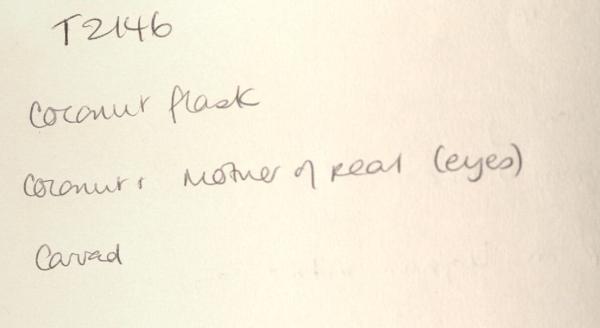 T2146
Coconut flask
Coconut, Mother of Pearl (eyes)
Carved